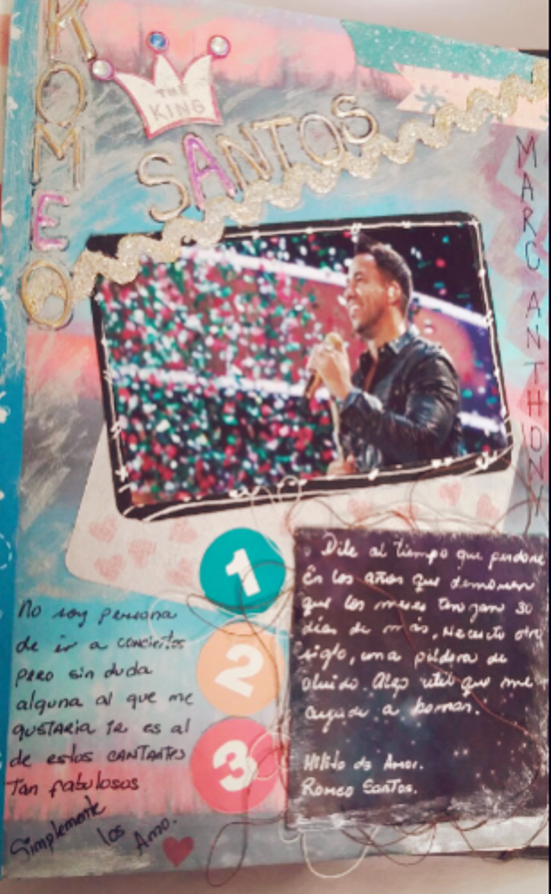 ROMEO
THE
KING
SANTOS
MARC ANTHONY
1
2
3
No soy persona
de ir a conciertos
pero sin duda
alguna al que me
gustaria ir es al
de estos CANTANTES
Tan fabulosos
Simplemente
los Amo.
Dile al tiempo que perdone
En los años que demoren
que los meses tengan 30
días de más, Necesito otro
siglo, una píldora de
olvido. Algo util que me
ayude a borrar.
Hilito de Amor.
Romeo Santos.